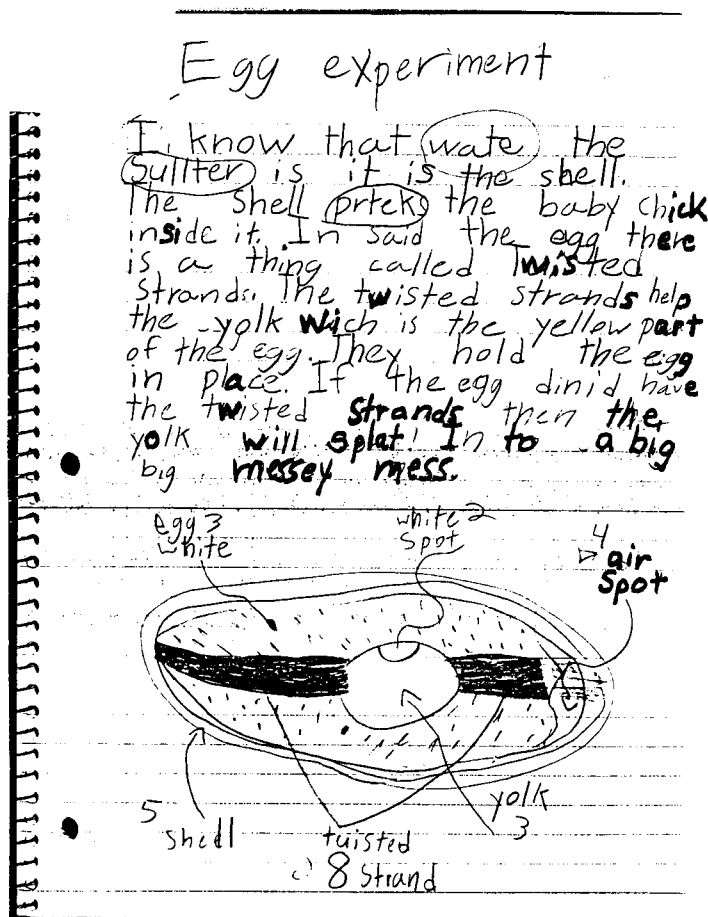 Egg experiment
I know that wate the
Sullter is it is the shell.
The Shell prteks the baby chick
inside it. In said the egg there
is a thing called Twisted
Strands. The twisted strands help
the yolk wich is the yellow part
of the egg. They hold the egg
in place. If the egg dinid have
the twisted Strands then the
yolk will splat! In to a big
big messey mess.
egg 3
white
white 2
Spot
4
air
Spot
5
Shell
tuisted
8 Strand
yolk
3